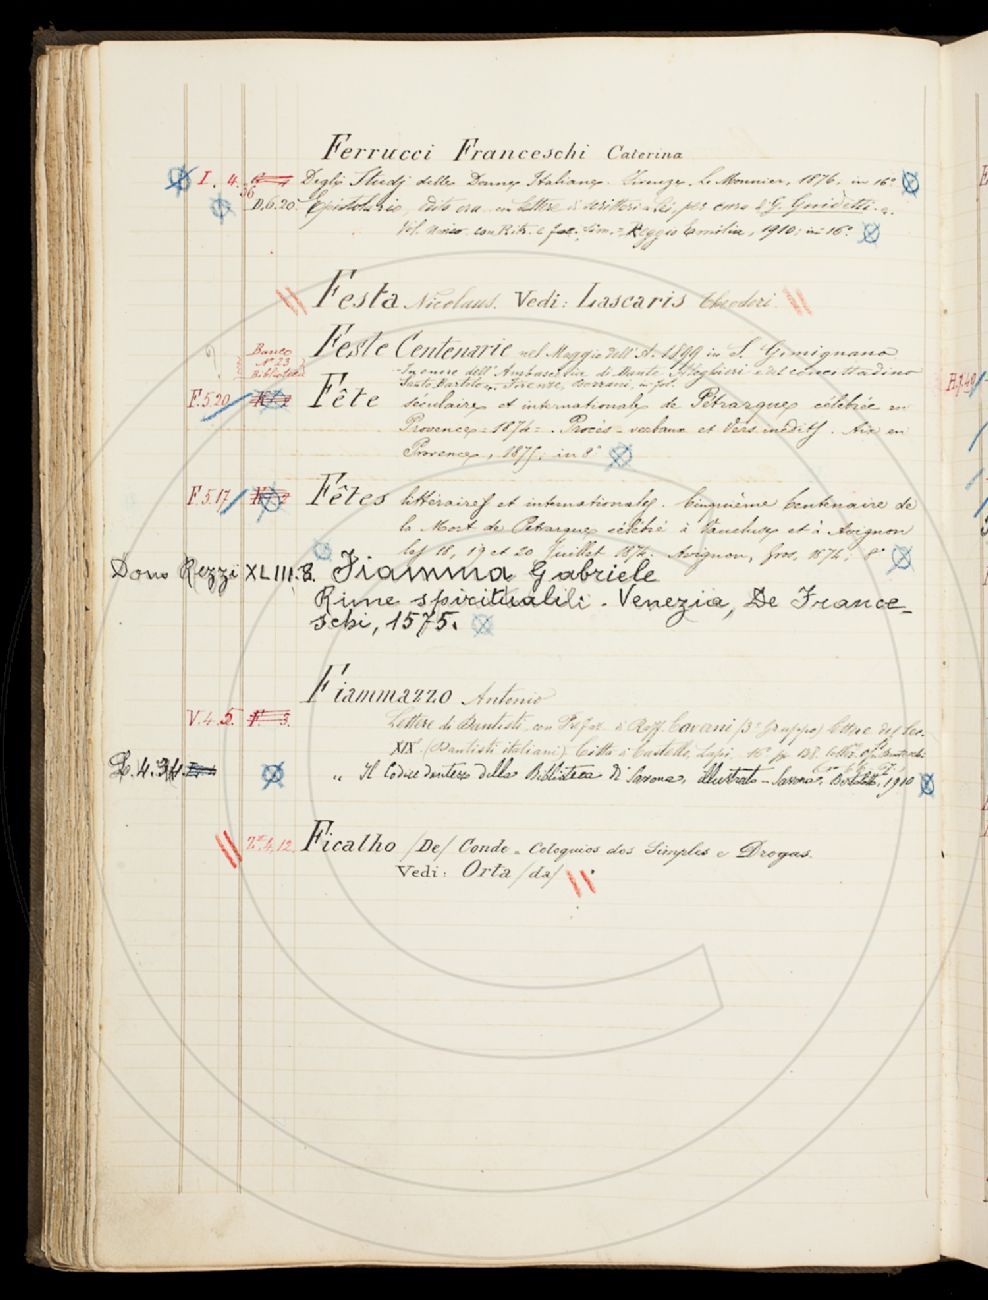 Ferrucci Franceschi Caterina
I. 4. Degli Studj delle Donne Italiane. Firenze, Le Monnier, 1876, in 16°
36
D.6.20. Epistolario, edito ora per cura di G. Guidetti.
Vol. unico con Ritr. e fac. sim. = Reggio Emilia, 1910; in 16°.
Festa Nicolaus. Vedi: Lascaris Theodori.
Feste Centenarie nel Maggio dell'A. 1899 in S. Gimignano
? Banco N° 23 Biblioteca
in onore dell'Ambasceria di Dante Alighieri e del concittadino
Santo Bartolo, Firenze, in fol.
F.5.20 Fête séculaire et internationale de Pétrarque célébrée en
Provence = 1874 = Procès-verbaux et Vers inédits. Aix en
Provence, 1875; in 8°
F.5.17 Fêtes littéraires et internationales. Cinquième Centenaire de
la Mort de Pétrarque célébré à Vaucluse et à Avignon
les 18, 19 et 20 Juillet 1874: Avignon, 1874, 8°
Dono Rezzi XLIII.8. Fiamma Gabriele
Rime spirituali. Venezia, De France-
schi, 1575.
Fiammazzo Antonio
V.4.5. Lettere di Dantisti, con Pref. di Raff. (3° Gruppo) Lettere del Sec.
XIX (Dantisti italiani) Città di Castello, Lapi, 16°
4.34 „ Il Codice dantesco della Biblioteca di Savona, illustrato - Savona, 1910
4.12 Ficalho /De/ Conde = Coloquios dos Simples e Drogas.
Vedi: Orta /da/